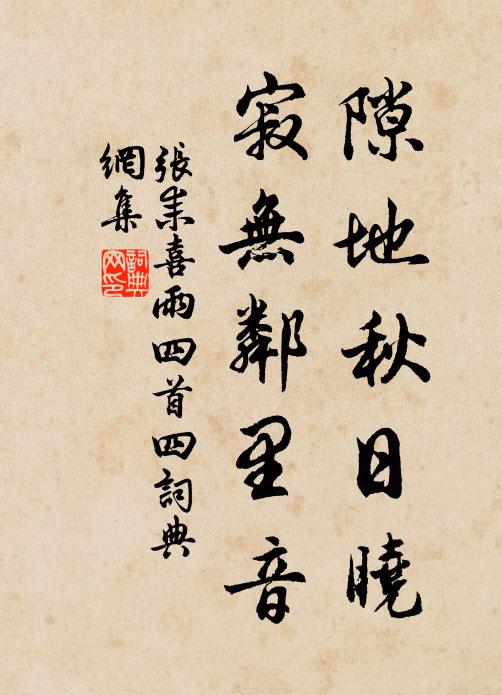 隙地秋日曉
寂無鄰里音
張耒喜雨四首四詞典
網集
詞典
网印